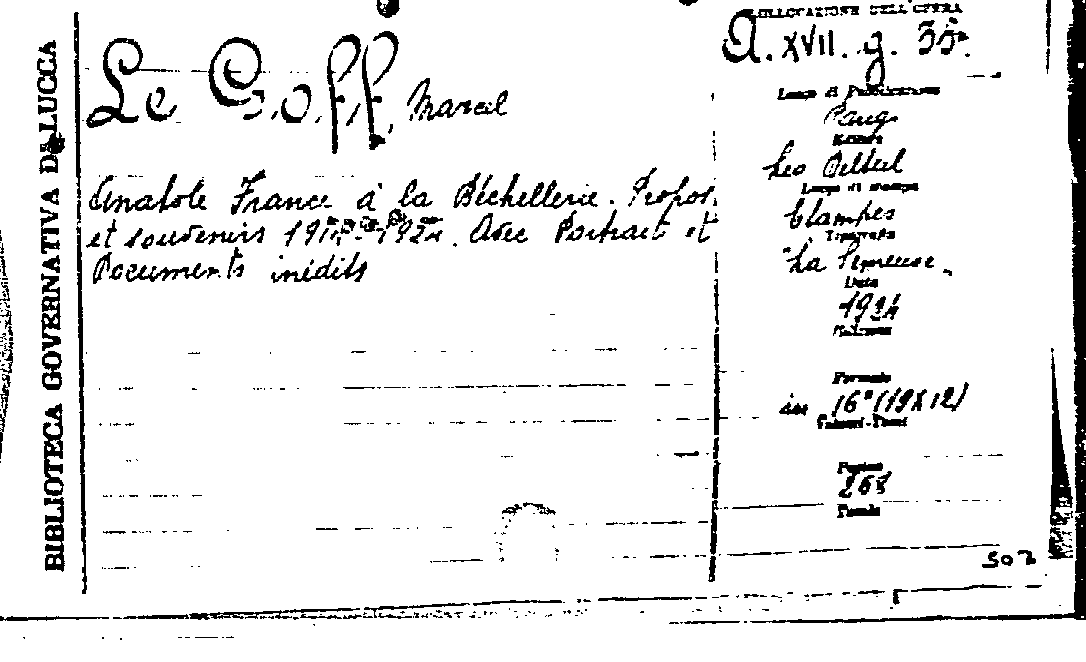 BIBLIOTECA GOVERNATIVA DI LUCCA
Le Goff, Marcel
Anatole France à la Béchellerie. Propos
et souvenirs 1914-1924. Avec Portrait et
Documents inédits
COLLOCAZIONE DELL'OPERA
A. XVII. g. 35.
Luogo di Pubblicazione
Parigi
Editore
Leo Delteil
Luogo di stampa
Etampes
Tipografia
"La Semeuse"
Data
1924
Edizione
Formato
in 16° (19X12)
Volumi-Tomi
Pagine
268
Tavole
502